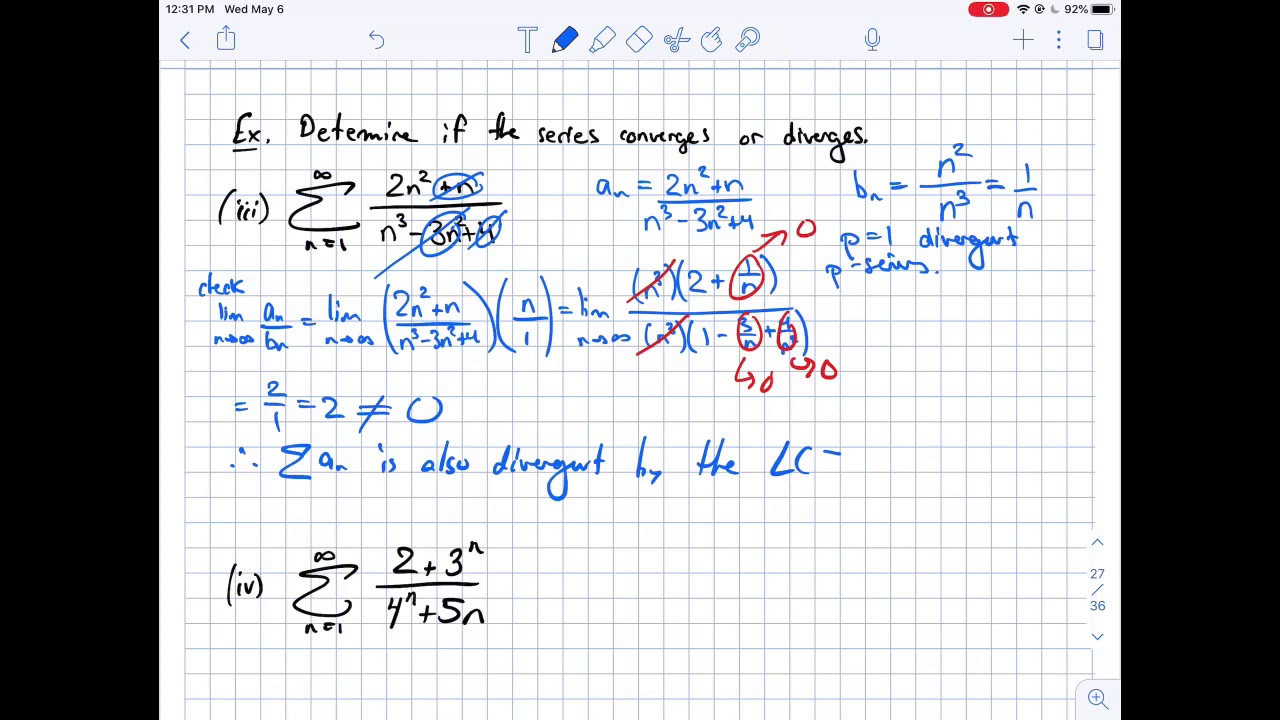 12:31 PM Wed May 6
92%
T
Ex. Determine if the series converges or diverges.
(iii) ∞ Σ n=1 (2n² + n)/(n³ - 3n² + 4)
aₙ = (2n² + n)/(n³ - 3n² + 4)
bₙ = n²/n³ = 1/n
p = 1 divergent
p-series.
check
lim n→∞ aₙ/bₙ = lim n→∞ ((2n² + n)/(n³ - 3n² + 4)) (n/1) = lim n→∞ (n³)(2 + 1/n)/((n³)(1 - 3/n + 4/n³))
→ 0
↳ 0
↳ 0
= 2/1 = 2 ≠ 0
∴ Σ aₙ is also divergent by the LCT
(iv) ∞ Σ n=1 (2 + 3ⁿ)/(4ⁿ + 5n)
27
/
36